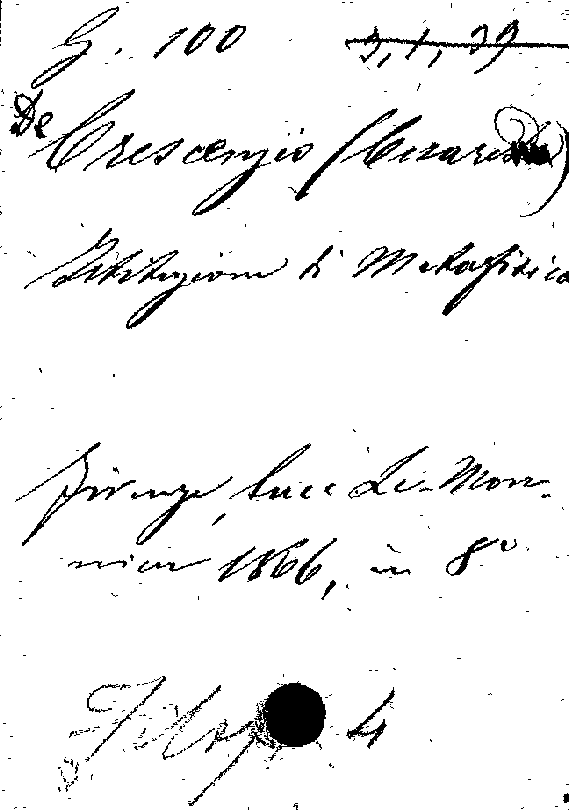 G. 100 3, 1, 39
De Crescenzio (Cesare
Istituzioni di Metafisica
Firenze, Succ Le-Mon-
nier 1866, in 8°
Filos 4